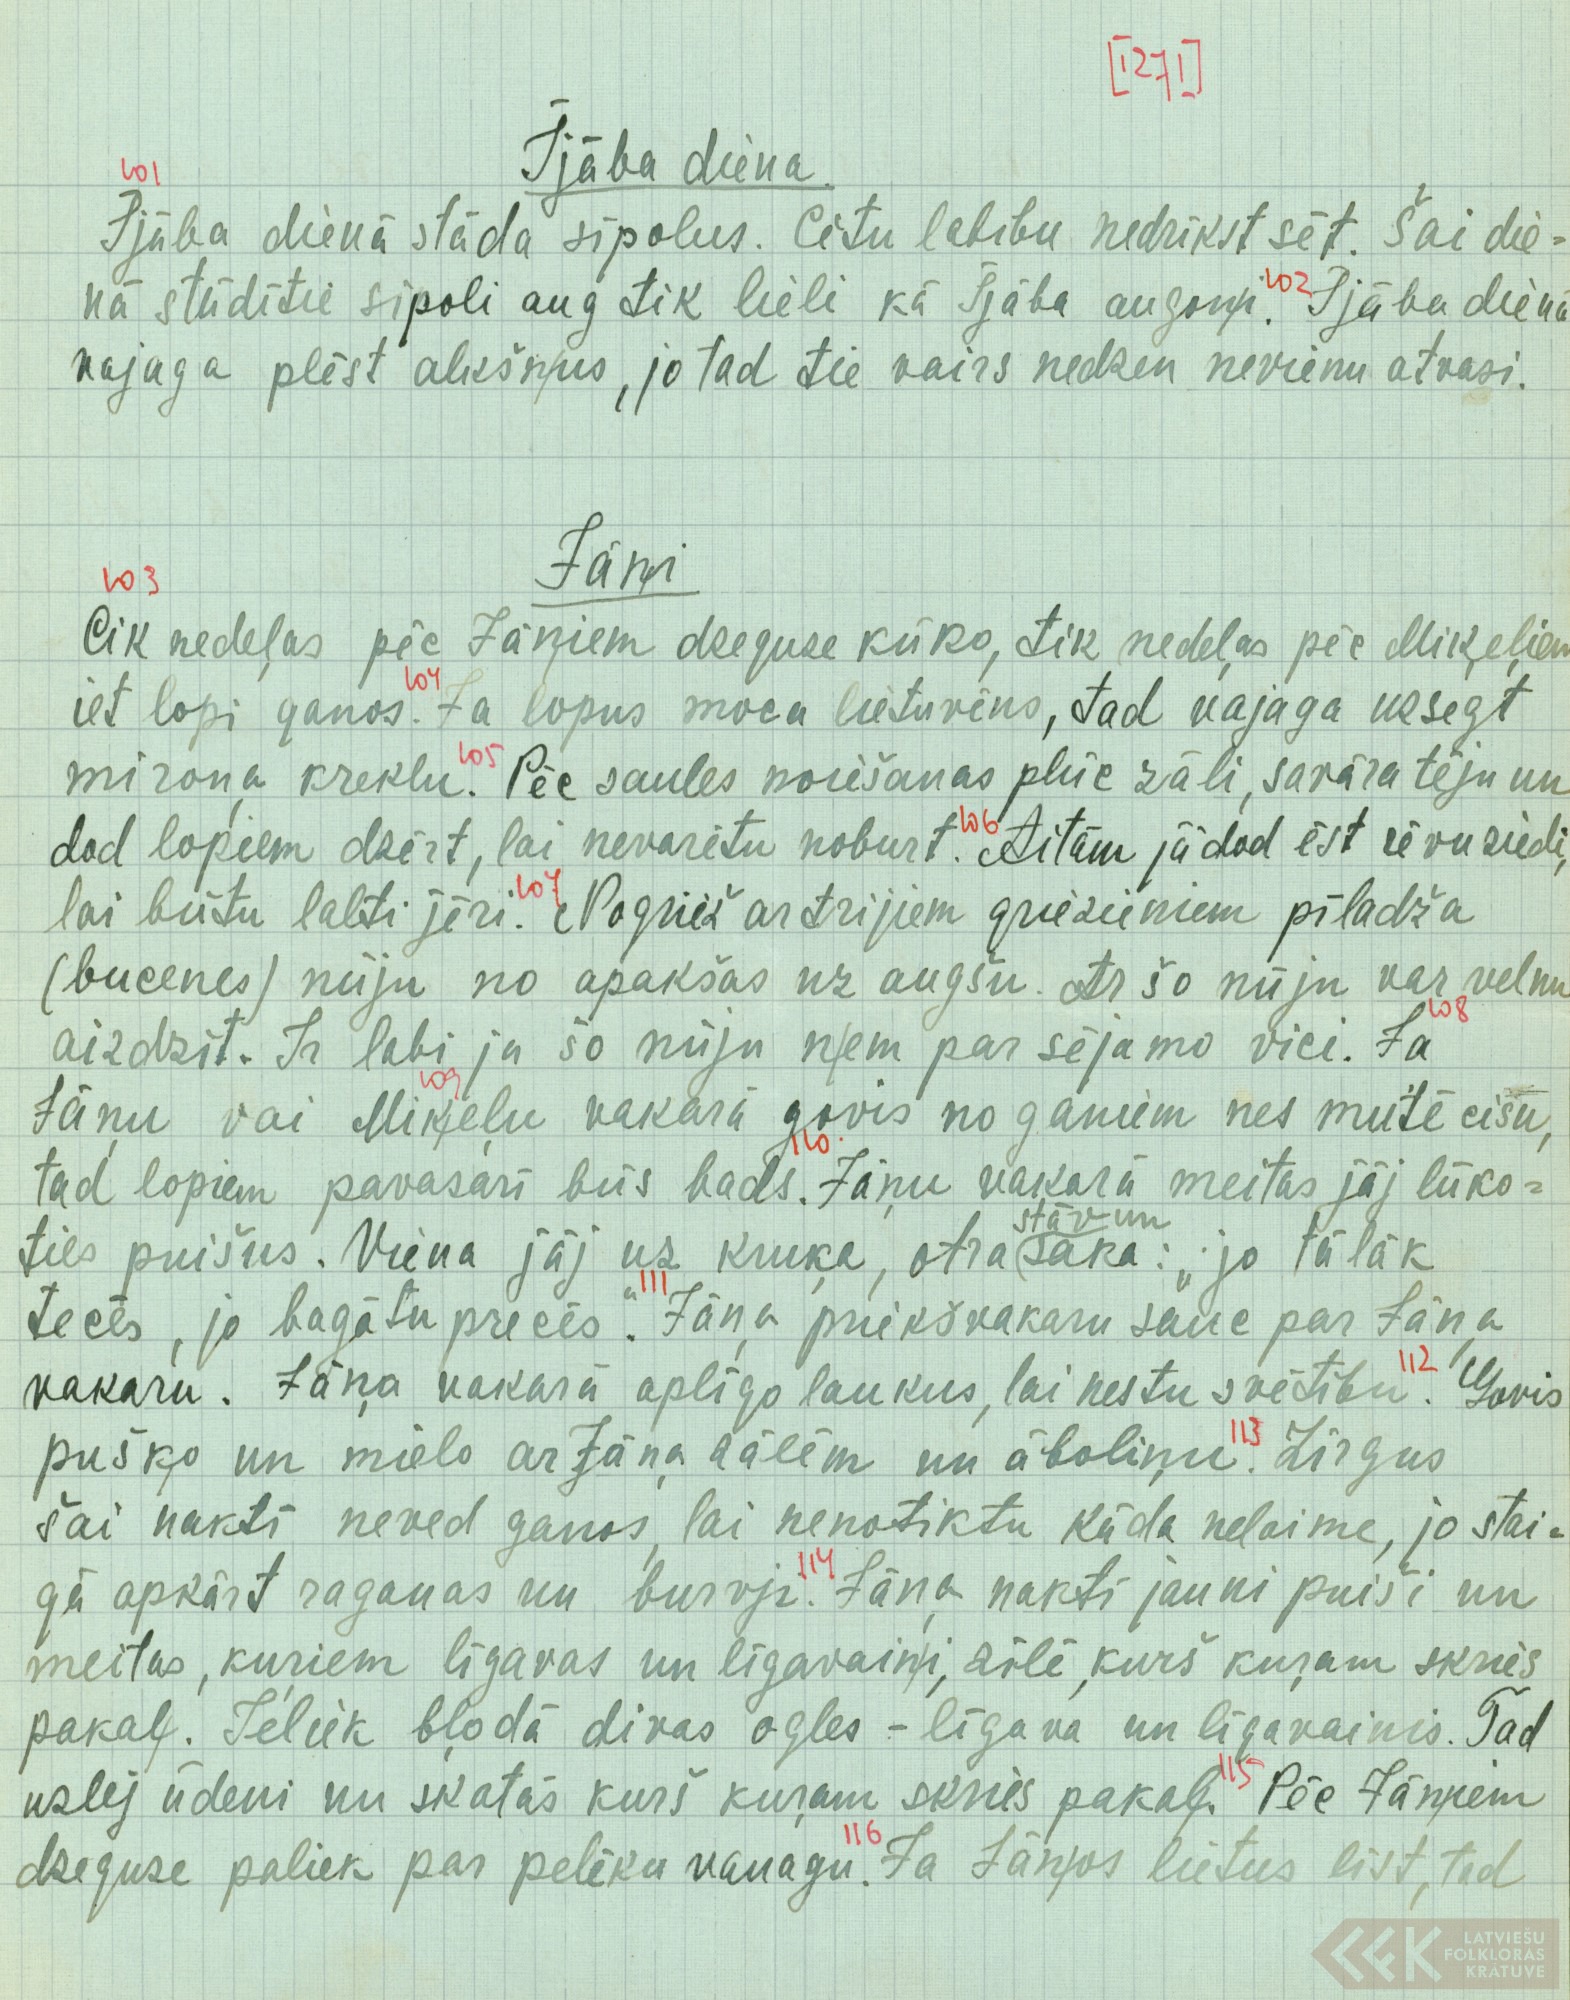 [1271]
Ījāba diena.
101
Ījāba dienā stāda sīpolus. Citu labību nedrīkst sēt. Šai die=
nā stādītie sīpoli aug tik lieli kā Ījāba augoņi. 102 Ījāba dienā
vajaga plēst alkšņus, jo tad tie vairs nedzen nevienu atvasi.
Jāņi
103
Cik nedeļas pēc Jāņiem dzeguze kūko, tik nedeļas pēc Miķeļiem
iet lopi ganos. 104 Ja lopus moca lietuvēns, tad vajaga uzsegt
miroņa kreklu. 105 Pēc saules noiešanas plūc zāli, savāra tēju un
dod lopiem dzērt, lai nevarētu noburt. 106 Aitām jādod ēst ievu ziedi,
lai būtu labti jēri. 107 Pogriež ar trijiem griezieniem pīladža
(bucenes) nūju no apakšas uz augšu. Ar šo nūju var velnu
aizdzīt. Ir labi ja šo nūju ņem par sējamo vici. Ja 108
Jāņu vai Miķeļu 109 vakarā govis no ganiem nes mutē cisu,
tad lopiem pavasarī būs bads. 110. Jāņu vakarā meitas jāj lūko=
ties puišus. Viena jāj uz kruķa, otra stāv un saka: „jo tālāk
tecēs, jo bagātu precēs“. 111 Jāņa priekšvakaru sauc par Jāņa
vakaru. Jāņa vakarā aplīgo laukus, lai nestu svētību. 112 Govis
puško un mielo ar Jāņa zālēm un āboliņu. 113 Zirgus
šai naktī neved ganos, lai nenotiktu kāda nelaime, jo stai=
gā apkārt raganas un burvji. 114 Jāņa naktī jauni puiši un
meitas, kuriem līgavas un līgavaiņi, zīlē, kurš kuŗam skries
pakaļ. Ieliek bļodā divas ogles – līgava un līgavainis. Tad
uzlej ūdeni un skatās kurš kuŗam skries pakaļ. 115 Pēc Jāņiem
dzeguze paliek par pelēku vanagu. 116 Ja Jāņos lietus līst, tad
LATVIEŠU
FOLKLORAS
KRĀTUVE